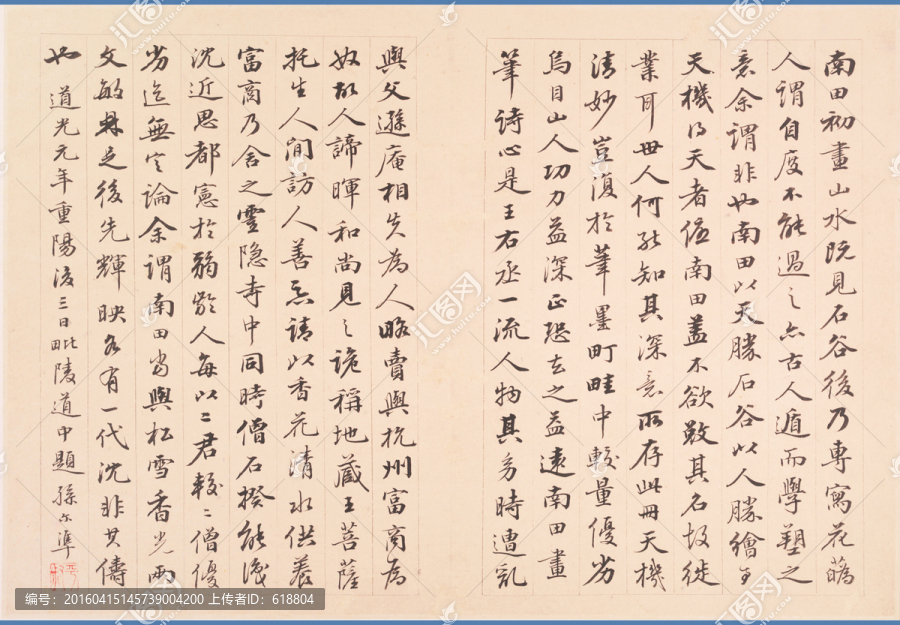 南田初畫山水既見石谷後乃專寫花
人謂自度不能過之亦古人遁而學塑之
意余謂非也南田以天勝石谷以人勝繪事
天機得天者優南田蓋不欲敵其名故徙
業耳世人何能知其深意所存此冊天機
清妙豈復於筆墨町畦中較量優劣
烏目山人功力益深正恐去之益遠南田畫
筆詩心是王右丞一流人物其少時遭亂
與父遜庵相失為人略賣與杭州富商為
奴故人諦暉和尚見之詭稱地藏王菩薩
托生人間訪人善惡請以香花清水供養
富商乃舍之靈隱寺中同時僧石揆能識
沈近思都憲於弱齡人每以二君較二僧優
劣迄無定論余謂南田當與松雪香光兩
文敏足後先輝映各有一代沈非其儔
也 道光元年重陽後三日毗陵道中題孫尔準
编号：20160415145739004200 上传者ID：618804
汇图网
www.huitu.com